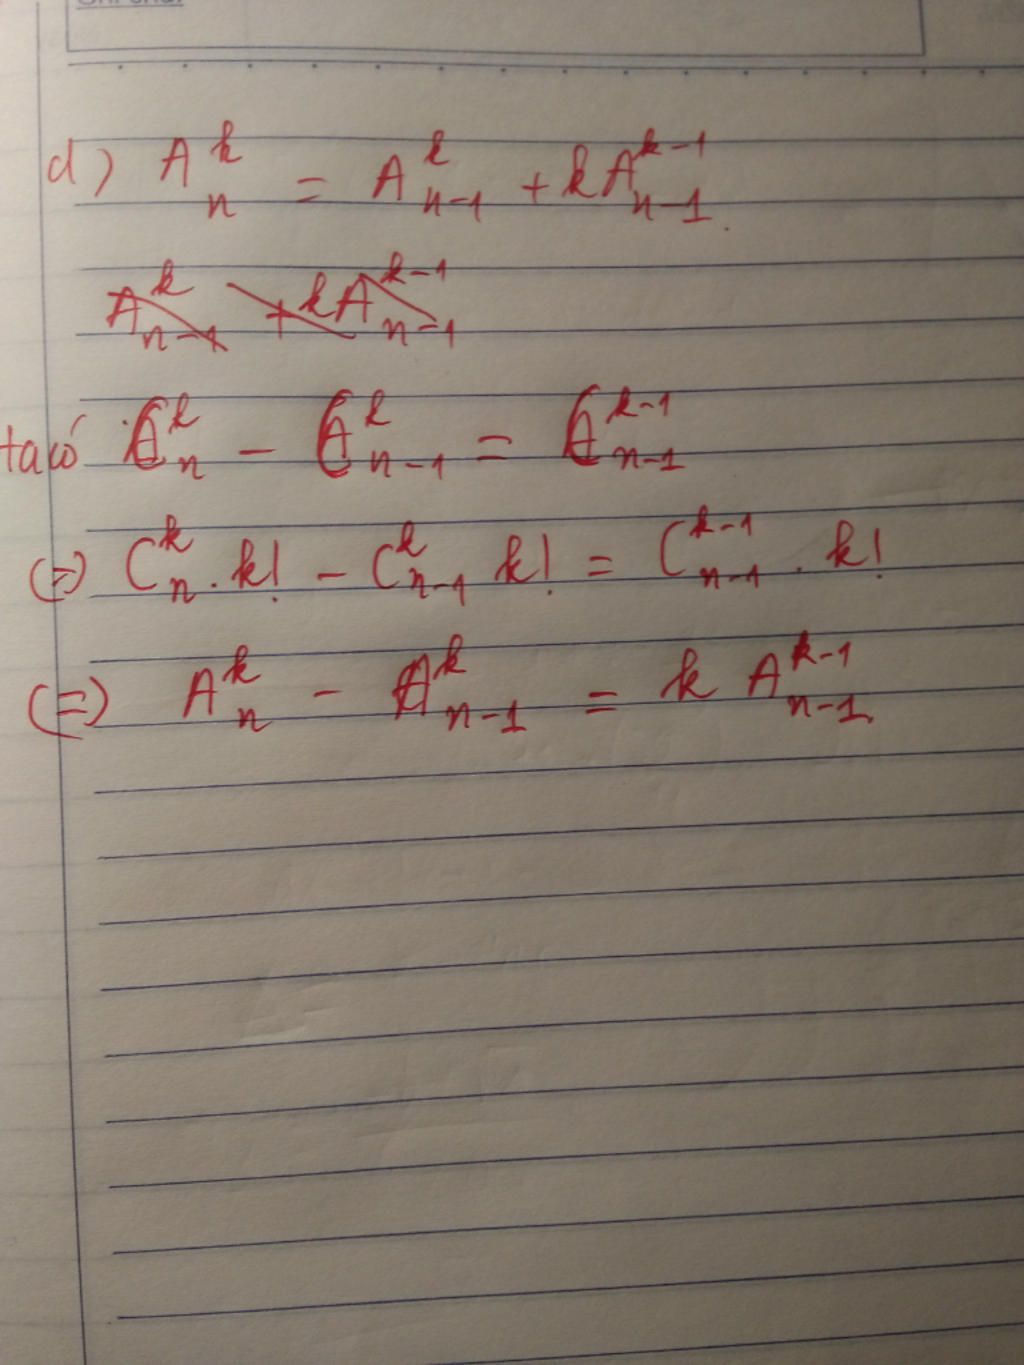 d) A^k_n = A^k_{n-1} + kA^{k-1}_{n-1}.
A^k_{n-1} + kA^{k-1}_{n-1}
ta có C^k_n - C^k_{n-1} = C^{k-1}_{n-1}
(=) C^k_n . k! - C^k_{n-1} k! = C^{k-1}_{n-1} . k!
(=) A^k_n - A^k_{n-1} = k A^{k-1}_{n-1}.